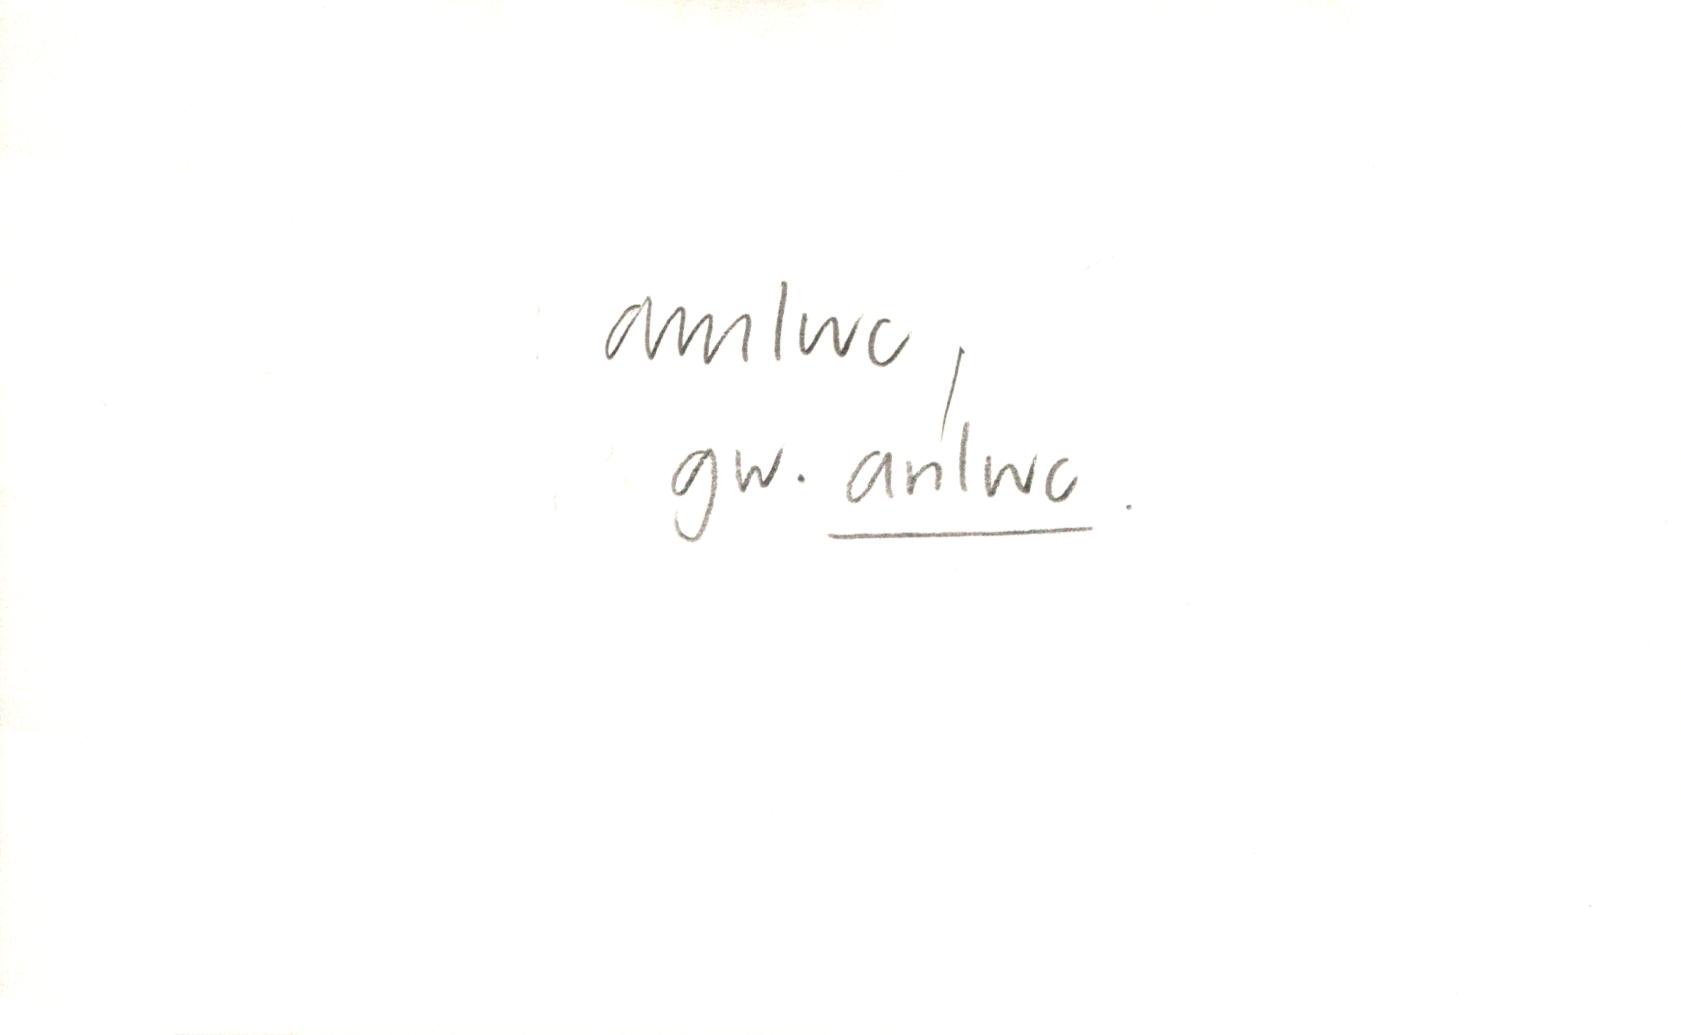 amlwc,
gw. anlwc.